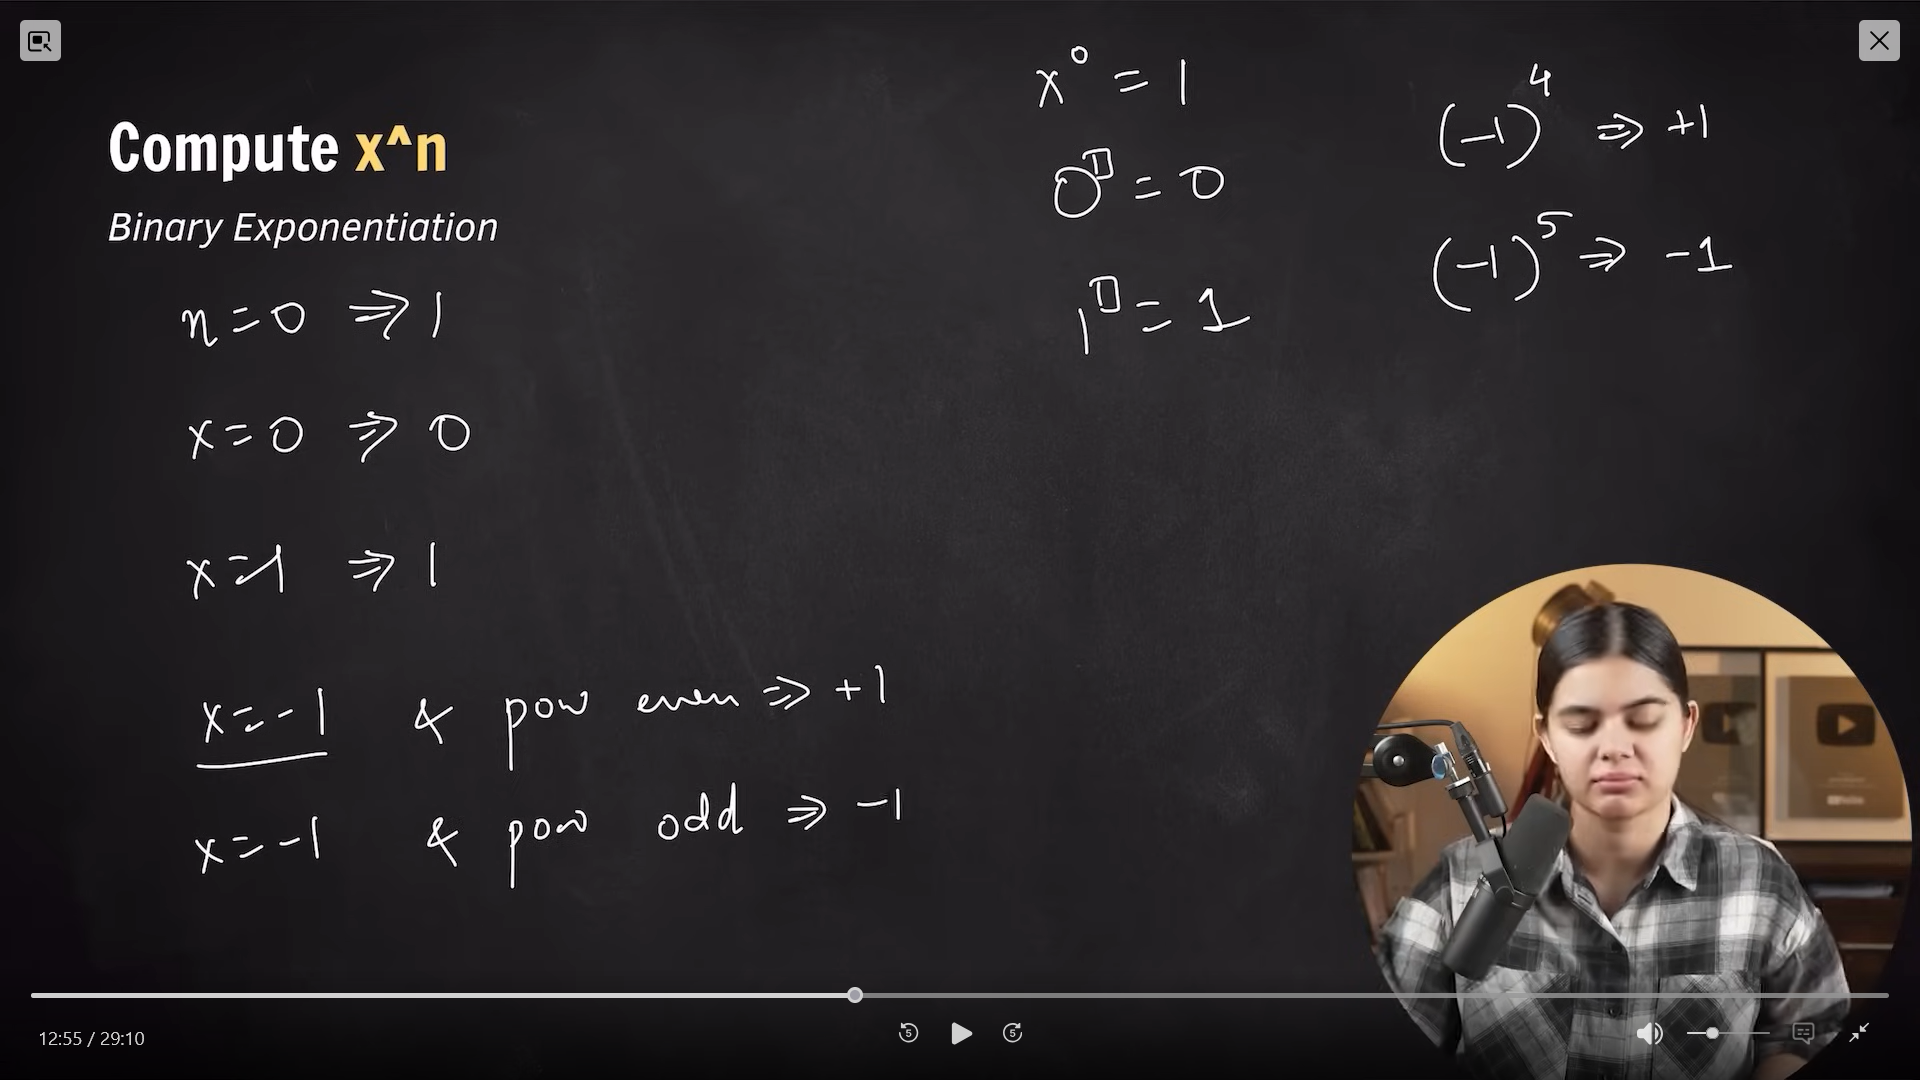 Compute x^n
Binary Exponentiation
n=0 ⇒ 1
x=0 ⇒ 0
x=1 ⇒ 1
x=-1 & pow even ⇒ +1
x=-1 & pow odd ⇒ -1
x⁰ = 1
0^□ = 0
1^□ = 1
(-1)⁴ ⇒ +1
(-1)⁵ ⇒ -1
12:55 / 29:10
5
5